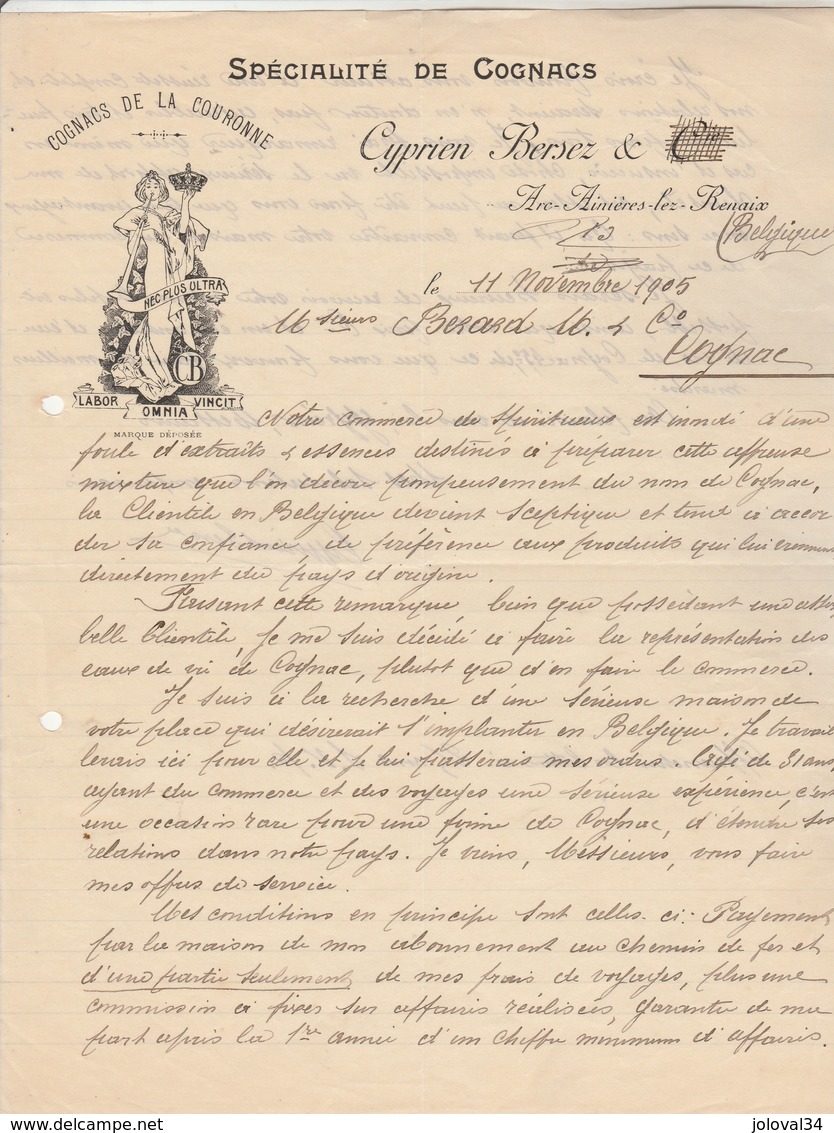 SPÉCIALITÉ DE COGNACS
COGNACS DE LA COURONNE
Cyprien Bersez & Cie
Arc-Ainières-lez-Renaix
(Belgique)
13
le 11 Novembre 1905
NEC PLUS OLTRA
CB
LABOR OMNIA VINCIT
MARQUE DÉPOSÉE
Messieurs Berard M. & Co
Cognac
Notre commerce de spiritueux est inondé d'une
foule d'extraits & essences destinés à préparer cette affreuse
mixture que l'on décore pompeusement du nom de Cognac,
la Clientèle en Belgique devient sceptique et tend à accor
der sa confiance, de préférence aux produits qui lui viennent
directement du pays d'origine.
Faisant cette remarque, bien que possédant une assez
belle Clientèle, je me suis décidé à faire la représentation des
eaux de vie de Cognac, plutot que d'en faire le commerce.
Je suis à la recherche d'une sérieuse maison de
votre place qui désirerait s'implanter en Belgique. Je travail
lerais ici pour elle et je lui passerais mes ordres. Agé de 31 ans,
ayant du commerce et des voyages une sérieuse expérience, c'est
une occasion rare pour une firme de Cognac, d'étendre ses
relations dans notre pays. Je viens, Messieurs, vous faire
mes offres de service.
Mes conditions en principe sont celles-ci: Payement
par la maison de mon abonnement au chemin de fer et
d'une partie seulement de mes frais de voyages, plus une
commission à fixer sur affaires réalisées, garantie de ma
part après la 1re année d'un chiffre minimum d'affaires.
www.delcampe.net
joloval34